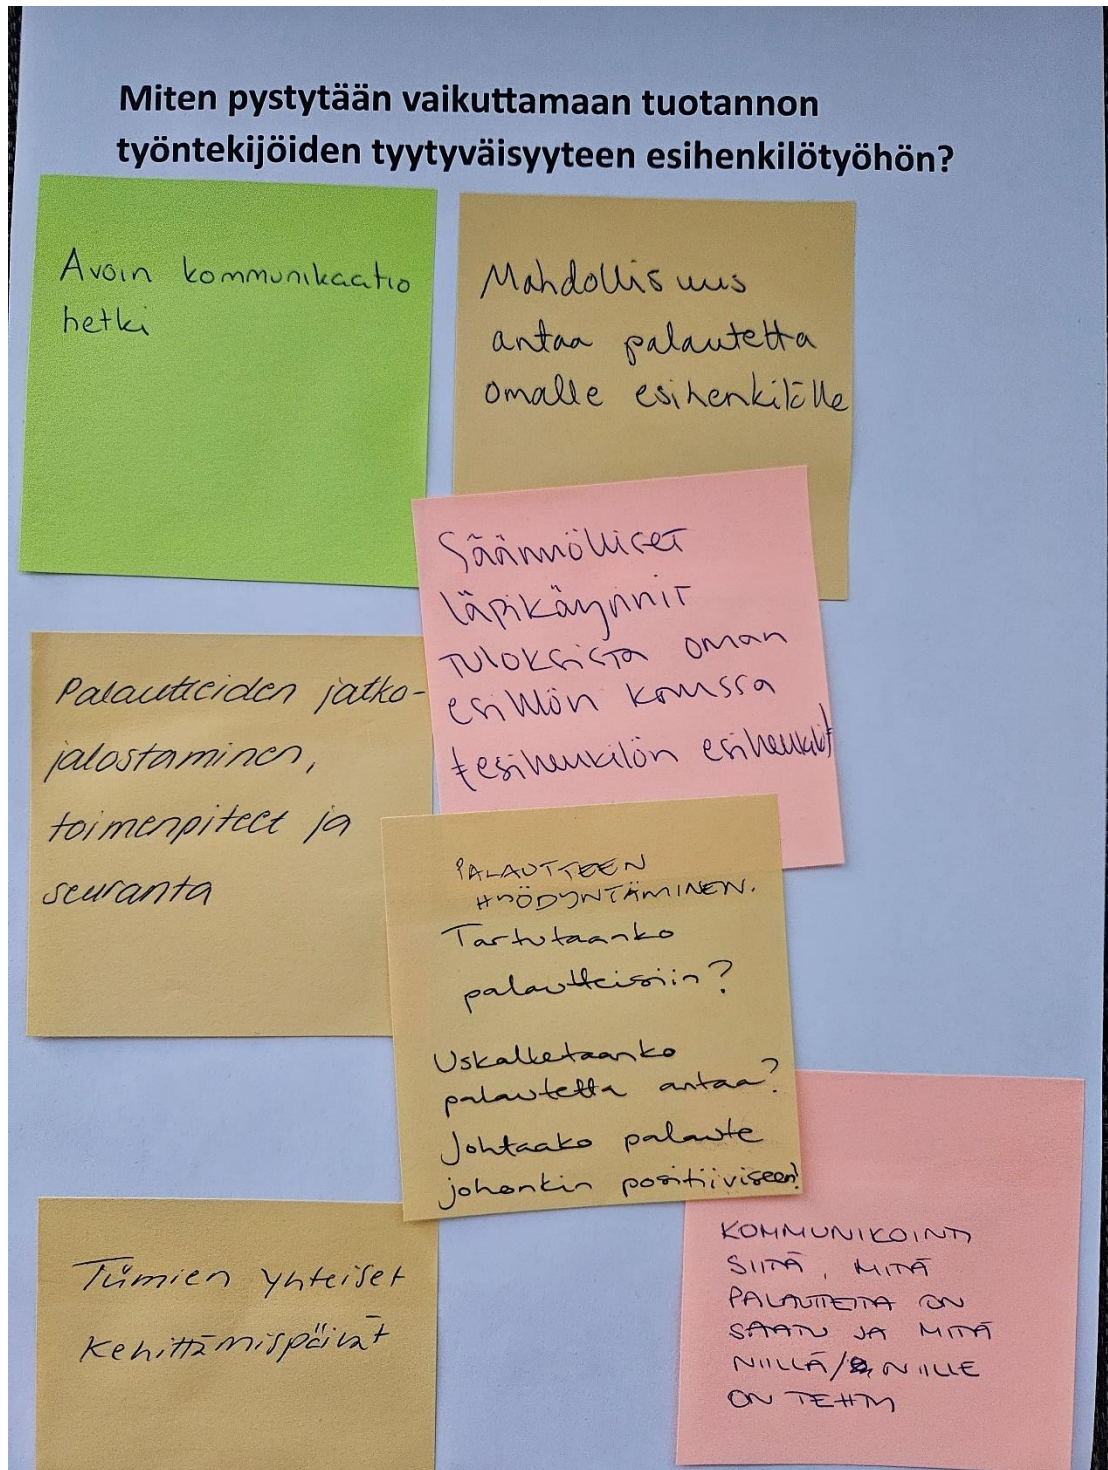 Miten pystytään vaikuttamaan tuotannon
työntekijöiden tyytyväisyyteen esihenkilötyöhön?
Avoin kommunikaatio
hetki
Mahdollisuus
antaa palautetta
omalle esihenkilölle
Säännölliset
läpikäynnit
tuloksista oman
esihlön kanssa
Palautteiden jatko-
jalostaminen,
toimenpiteet ja
seuranta
PALAUTTEEN
HYÖDYNTÄMINEN.
Tartutaanko
palautteisiin?
Uskalletaanko
palautetta antaa?
Johtaako palaute
johonkin positiiviseen?
Tiimien yhteiset
kehittämispäivät
KOMMUNIKOINTI
SIITÄ, MITÄ
PALAUTTEITA ON
SAATU JA MITÄ
NIILLÄ/NIILLE
ON TEHTY